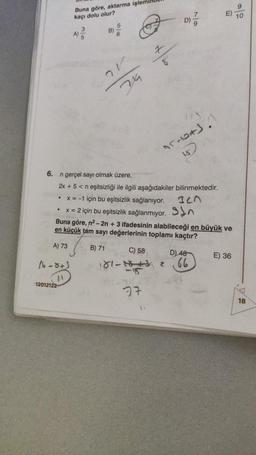 Buna göre, aktarma
kaçı dolu olur?
A) 3/5
B) 5/8
D) 7/9
E) 9/10
6. n gerçel sayı olmak üzere,
2x + 5 < n eşitsizliği ile ilgili aşağıdakiler bilinmektedir.
• x = -1 için bu eşitsizlik sağlanıyor. 3<n
• x = 2 için bu eşitsizlik sağlanmıyor.
Buna göre, n² – 2n + 3 ifadesinin alabileceği en büyük ve
en küçük tam sayı değerlerinin toplamı kaçtır?
A) 73
B) 71
C) 58
D) 48
E) 36
11
66
77
18